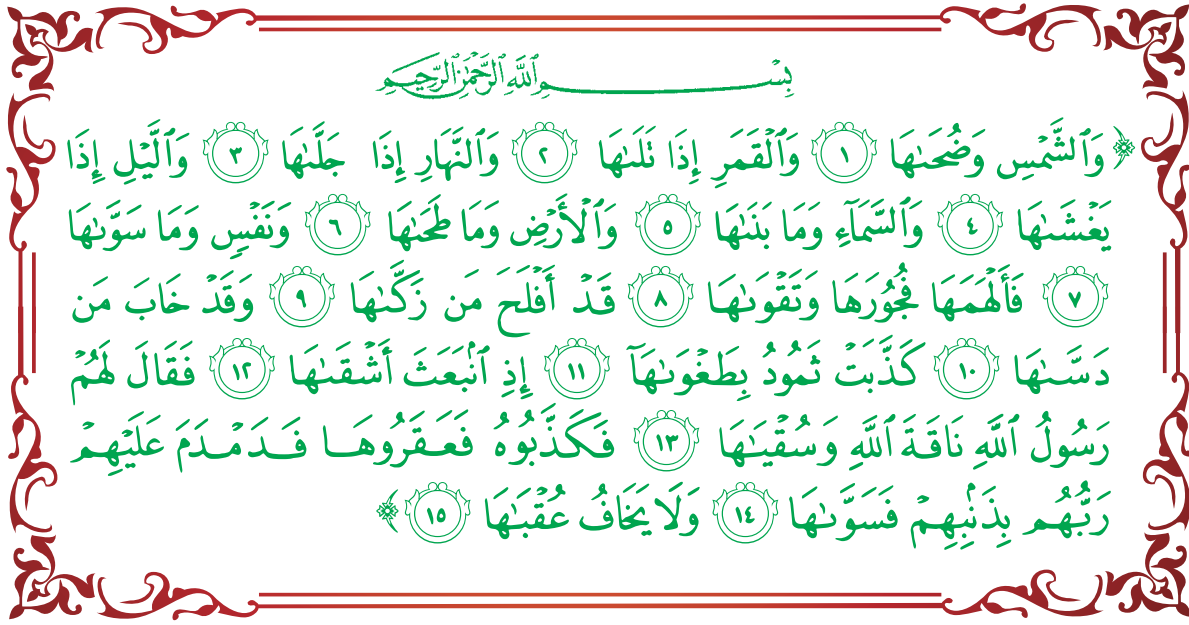 بِسْمِ ٱللَّهِ ٱلرَّحْمَٰنِ ٱلرَّحِيمِ
﴿ وَٱلشَّمْسِ وَضُحَىٰهَا ١ وَٱلْقَمَرِ إِذَا تَلَىٰهَا ٢ وَٱلنَّهَارِ إِذَا جَلَّىٰهَا ٣ وَٱلَّيْلِ إِذَا
يَغْشَىٰهَا ٤ وَٱلسَّمَآءِ وَمَا بَنَىٰهَا ٥ وَٱلْأَرْضِ وَمَا طَحَىٰهَا ٦ وَنَفْسٍ وَمَا سَوَّىٰهَا
٧ فَأَلْهَمَهَا فُجُورَهَا وَتَقْوَىٰهَا ٨ قَدْ أَفْلَحَ مَن زَكَّىٰهَا ٩ وَقَدْ خَابَ مَن
دَسَّىٰهَا ١٠ كَذَّبَتْ ثَمُودُ بِطَغْوَىٰهَآ ١١ إِذِ ٱنۢبَعَثَ أَشْقَىٰهَا ١٢ فَقَالَ لَهُمْ
رَسُولُ ٱللَّهِ نَاقَةَ ٱللَّهِ وَسُقْيَٰهَا ١٣ فَكَذَّبُوهُ فَعَقَرُوهَا فَدَمْدَمَ عَلَيْهِمْ
رَبُّهُم بِذَنۢبِهِمْ فَسَوَّىٰهَا ١٤ وَلَا يَخَافُ عُقْبَٰهَا ١٥ ﴾